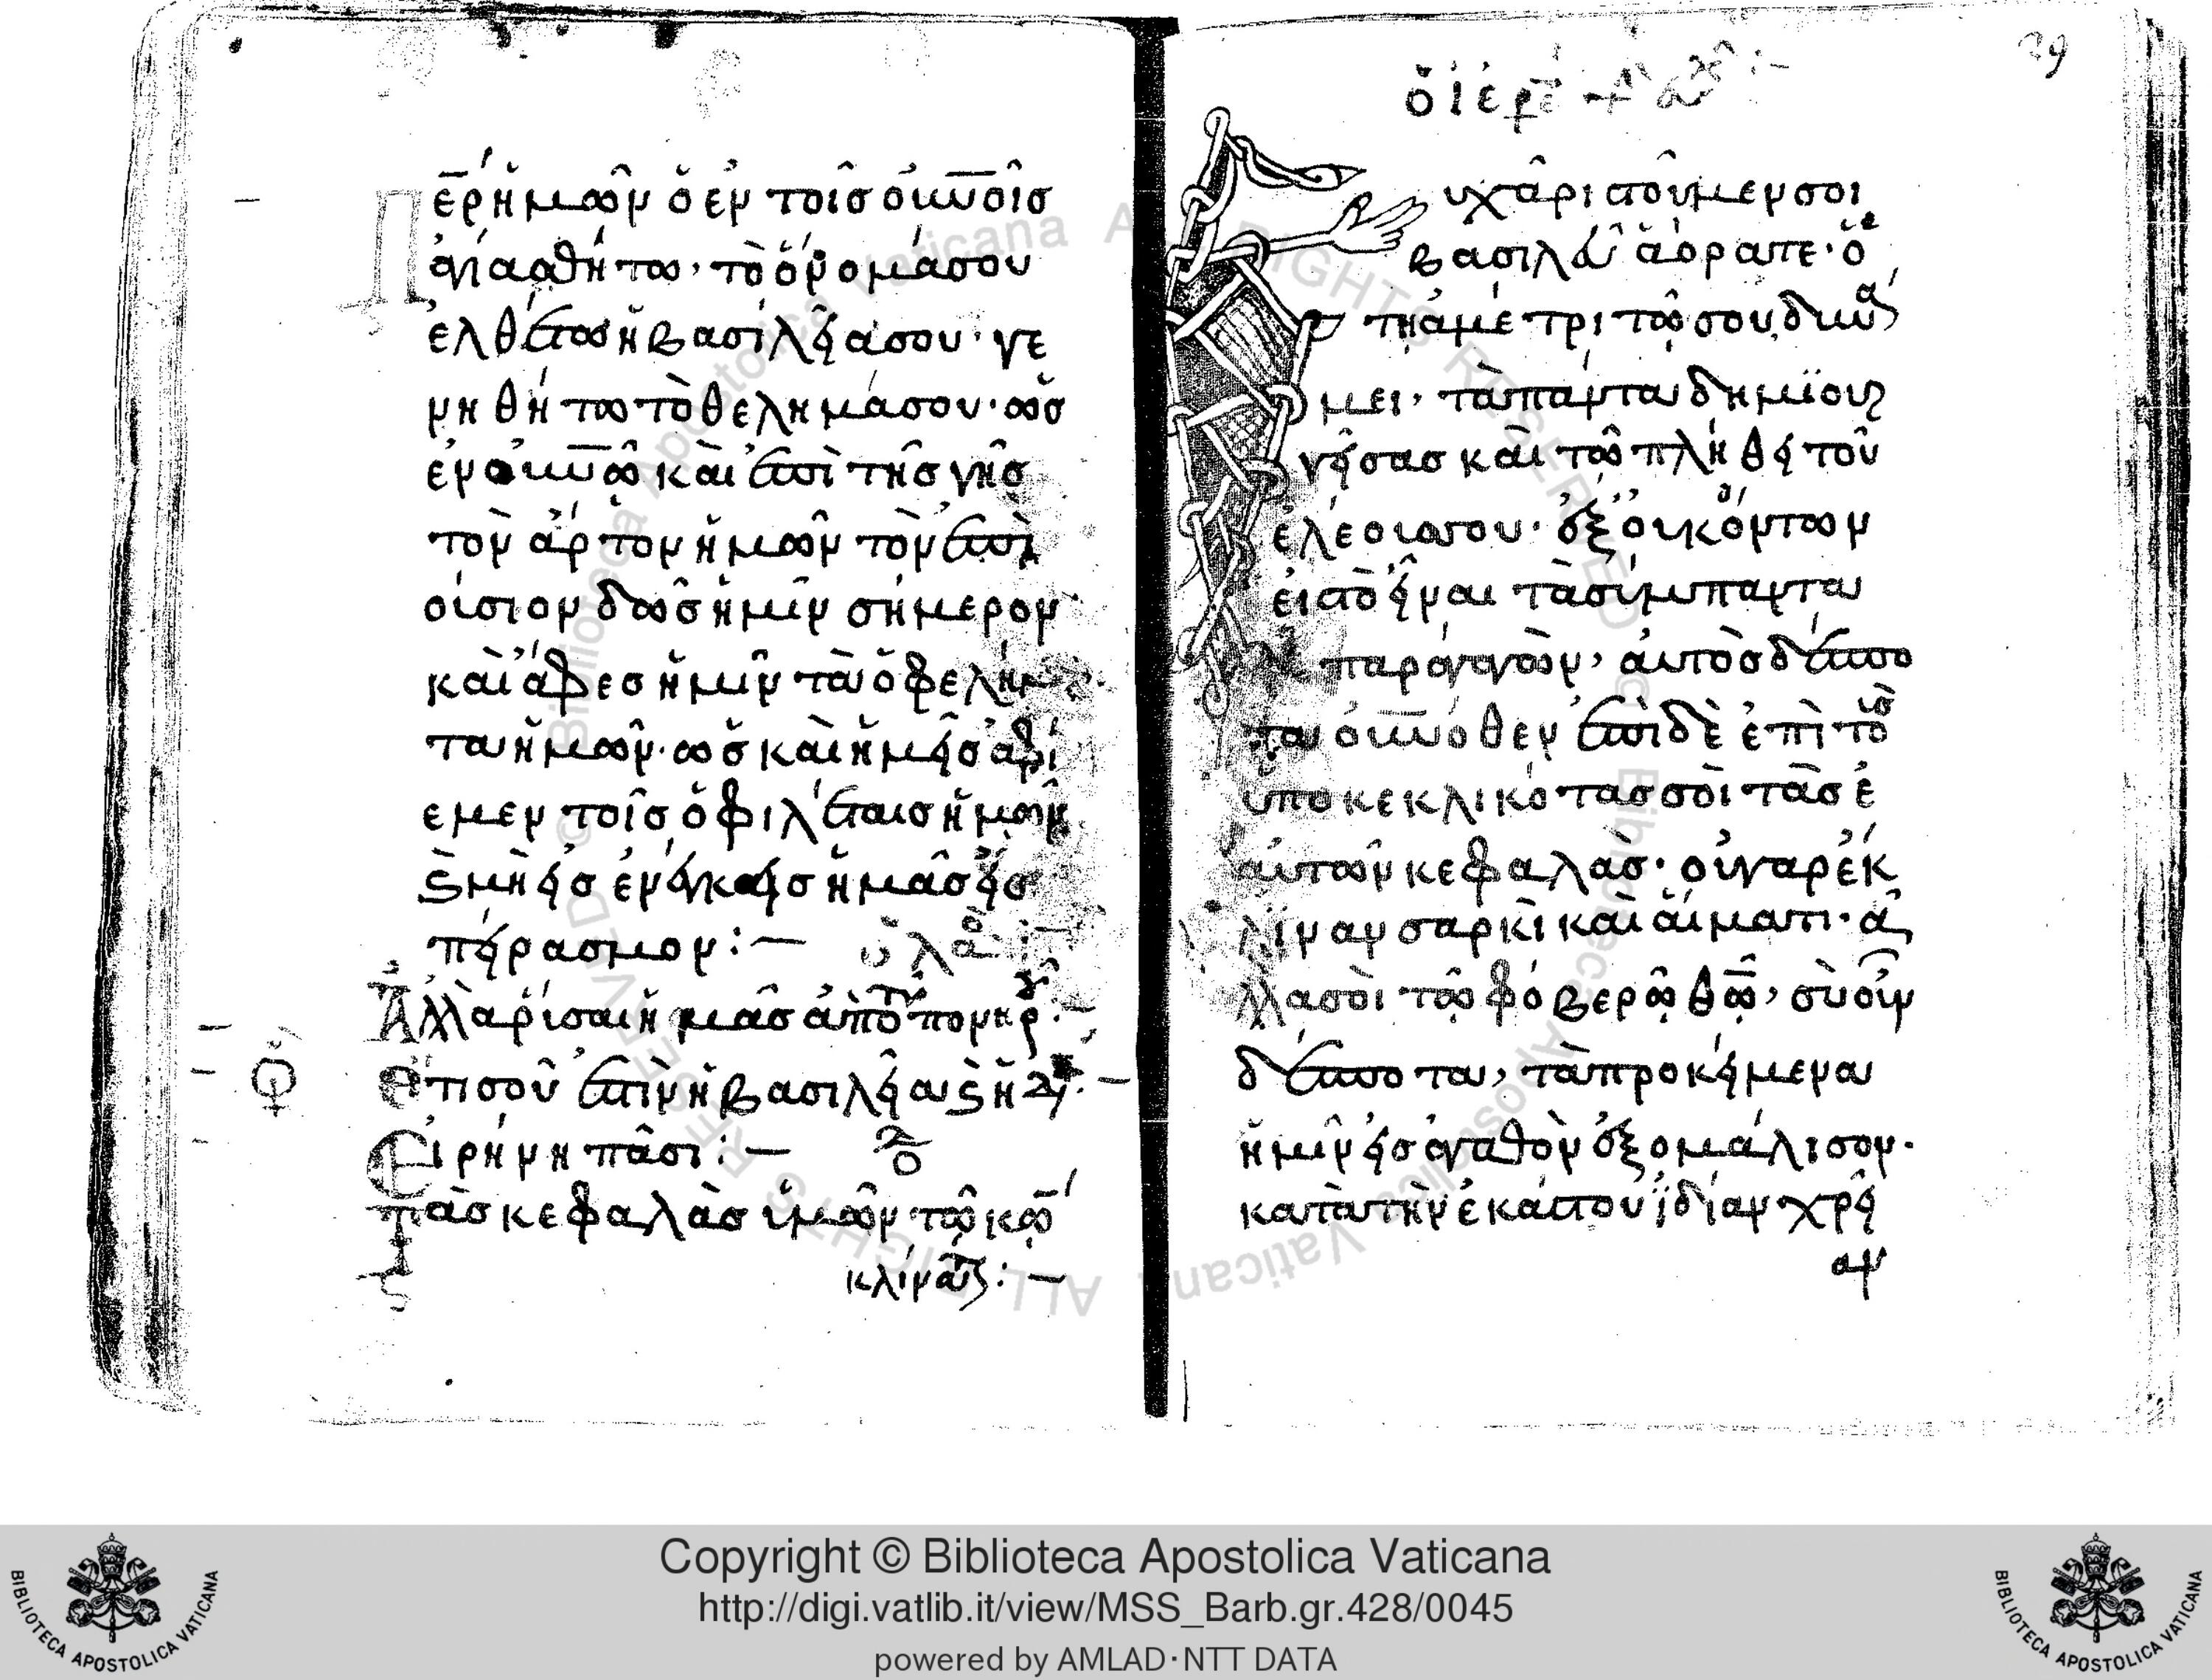 Περ ἡμῶν ὁ ἐν τοῖς οὐνοῖς
ἁγιασθήτω, τὸ ὄνομά σου
ἐλθέτω ἡ βασιλεία σου· γε
νηθήτω τὸ θέλημά σου· ὡς
ἐν οὐνῶ καὶ ἐπὶ τῆς γῆς
τὸν ἄρτον ἡμῶν τὸν ἐπι
ούσιον δῶς ἡμῖν σήμερον
καὶ ἄφες ἡμῖν τὰ ὀφελήμα
τα ἡμῶν· ὡς καὶ ἡμεῖς ἀφί
εμεν τοῖς ὀφιλέταις ἡμῶν
ϗ μὴ εἰσενείγκεις ἡμᾶς εἰς
πειρασμον:—
Ἀλλα ρύσαι ἡμᾶς ἀπὸ τοῦ πονηροῦ:—
Ὅτι σοῦ ἐστὶν ἡ βασιλεία ϗ ἡ
Εἰρήνη πᾶσι:—
Τὰς κεφαλὰς ὑμῶν τῶ κῶ
κλίνατε:—
39
ὁ ἱερε
υχαριστοῦμεν σοι
βασιλεῦ ἀόρατε· ὁ
τῆ ἀμέτρι τῶ σου δυνά
μει, τὰ πάντα δημϊουρ
γείσας καὶ τῶ πλήθει τοῦ
ἐλέοις σου· ἐξ οὐκ ὄντων
εἰς τὸ εἶναι τὰ σύμπαντα
παραγαγών, αὐτὸς δέσπο
τα οὐνόθεν ἔπιδε ἐπὶ τοὺς
ὑποκεκλικότας σοὶ τὰς ἑ
αυτῶν κεφαλὰς· οὐ γαρ ἔκ
λιναν σαρκὶ καὶ αἵματι· ἀλ
λα σοὶ τῶ φοβερῶ θῶ, σὺ οὖν
δέσποτα, τὰ προκείμενα
ἡμῖν εἰς ἀγαθὸν ἐξομάλισον·
κατὰ τὴν ἑκάστου ἰδίαν χρεί
αν
Copyright © Biblioteca Apostolica Vaticana
http://digi.vatlib.it/view/MSS_Barb.gr.428/0045
powered by AMLAD·NTT DATA
BIBLIOTECA APOSTOLICA VATICANA
BIBLIOTECA APOSTOLICA VATICANA